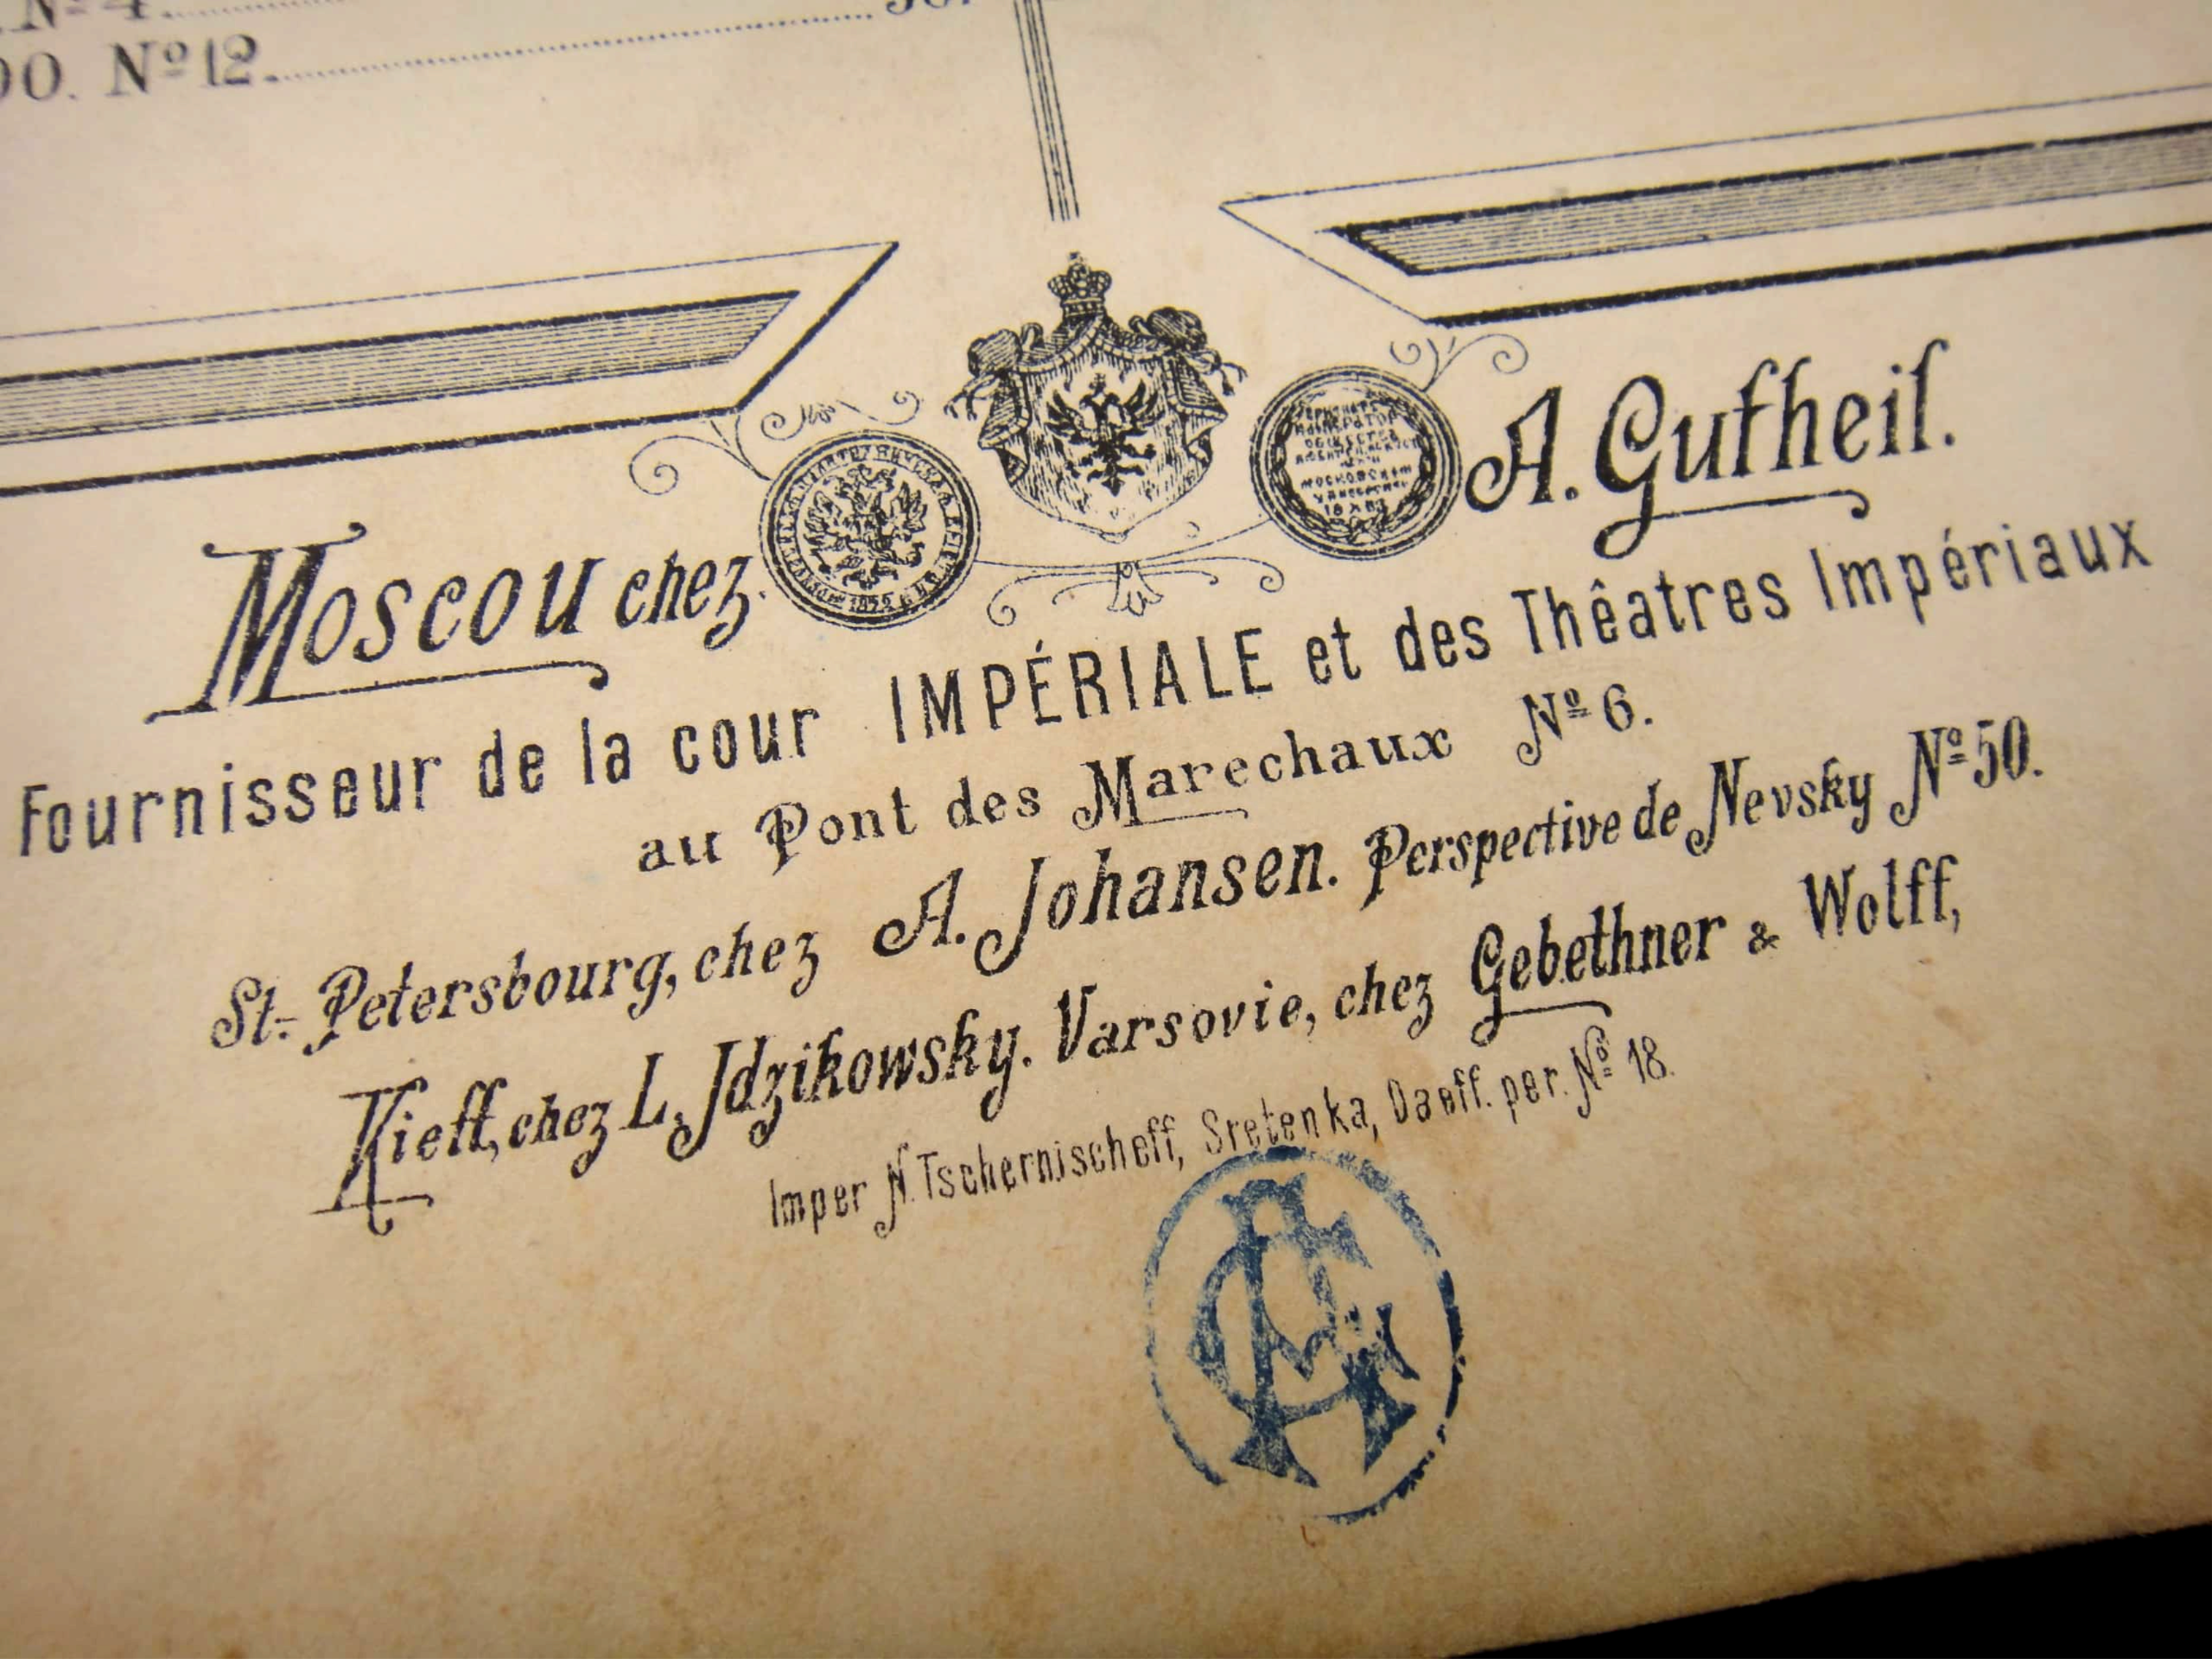 Nº 4
Nº 12
Moscou chez A. Gutheil.
Fournisseur de la cour IMPÉRIALE et des Thêatres Impériaux
au Pont des Marechaux Nº 6.
St-Petersbourg, chez A. Johansen. Perspective de Nevsky Nº 50.
Kieff, chez L. Jdzikowsky. Varsovie, chez Gebethner & Wolff,
Imper N. Tschernischeff, Sretenka, per. Nº 18.